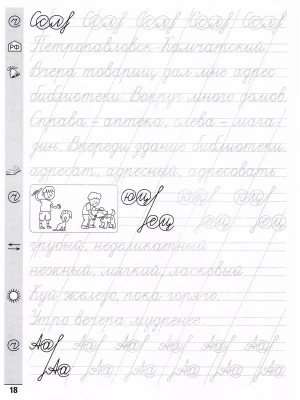 Петропавловск-Камчатский,
Вчера товарищ дал мне адрес
библиотеки. Вокруг много домов.
Справа - аптека, слева - мага-
зин. Впереди здание библиотеки.
адресат, адресный, адресовать
грубый, неделикатный
нежный, мягкий, ласковый
Куй железо, пока горячо.
Утро вечера мудренее.
18